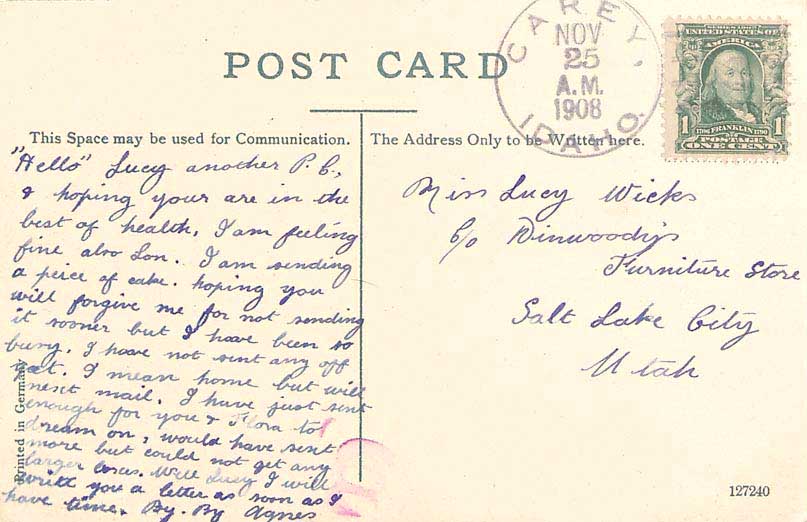 POST CARD
CAREY, IDAHO.
NOV
25
A.M.
1908
SERIES 1902
UNITED STATES OF
AMERICA
1706 FRANKLIN 1790
POSTAGE
1 1
ONE CENT
This Space may be used for Communication.
"Hello" Lucy another P. C.,
& hoping your are in the
best of health, I am feeling
fine also Lon. I am sending
a peice of cake. hoping you
will forgive me for not sending
it sooner but I have been so
busy. I have not sent any off
yet. I mean home but will
next mail. I have just sent
enough for you & Flora to
dream on, would have sent
more but could not get any
larger boxes. Well Lucy I will
write you a letter as soon as I
have time. By. By Agnes
The Address Only to be Written here.
Miss Lucy Wicks
c/o Dinwoodys
Furniture Store
Salt Lake City
Utah
Printed in Germany
127240